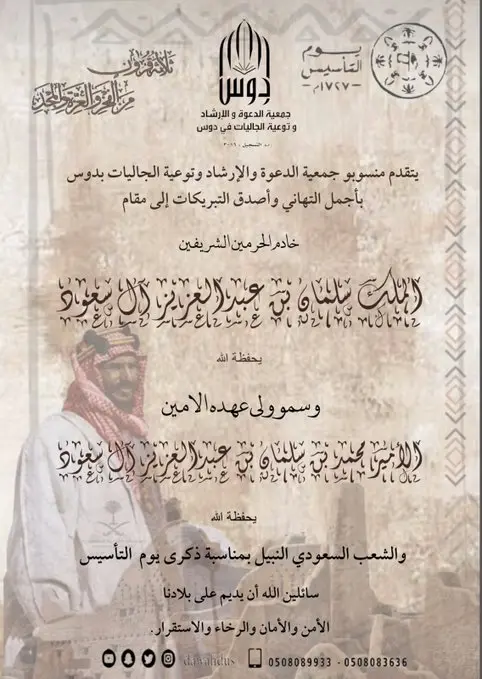 ثلاثة قرون
من الفخر والعز والمجد
يوم
التأسيس
١٧٢٧م
دوس
جمعية الدعوة و الإرشاد
و توعية الجاليات في دوس
يتقدم منسوبو جمعية الدعوة والإرشاد وتوعية الجاليات بدوس
بأجمل التهاني وأصدق التبريكات إلى مقام
خادم الحرمين الشريفين
الملك سلمان بن عبدالعزيز آل سعود
يحفظة الله
وسمو ولي عهده الامين
الأمير محمد بن سلمان بن عبدالعزيز آل سعود
يحفظة الله
والشعب السعودي النبيل بمناسبة ذكرى يوم التأسيس
سائلين الله أن يديم على بلادنا
الأمن والأمان والرخاء والاستقرار.
dawahdus 0508089933 - 0508083636